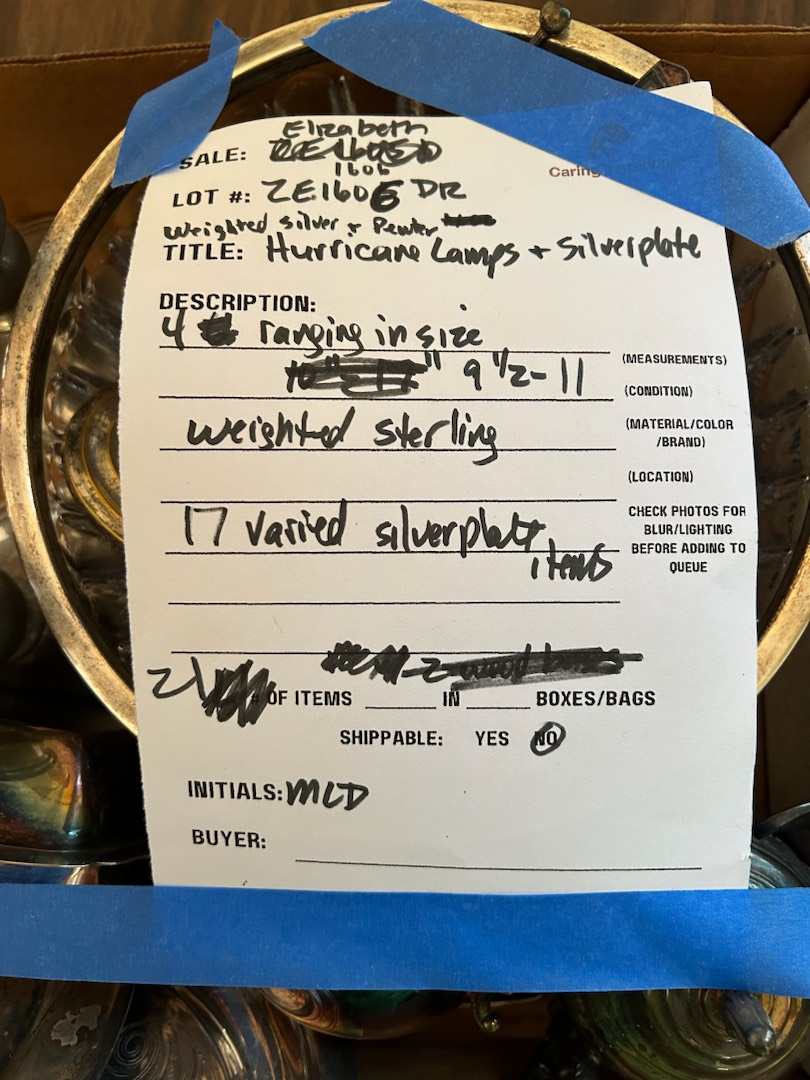 Elizabeth
SALE:
1606
Caring
LOT #: ZE1606 DR
Weighted silver + Pewter
TITLE: Hurricane Lamps + Silverplate
DESCRIPTION:
4 ranging in size
(MEASUREMENTS)
9 1/2 - 11
(CONDITION)
weighted sterling
(MATERIAL/COLOR
/BRAND)
(LOCATION)
17 varied silverplate
items
CHECK PHOTOS FOR
BLUR/LIGHTING
BEFORE ADDING TO
QUEUE
21 # OF ITEMS ______ IN ______ BOXES/BAGS
SHIPPABLE: YES NO
INITIALS: MLD
BUYER: